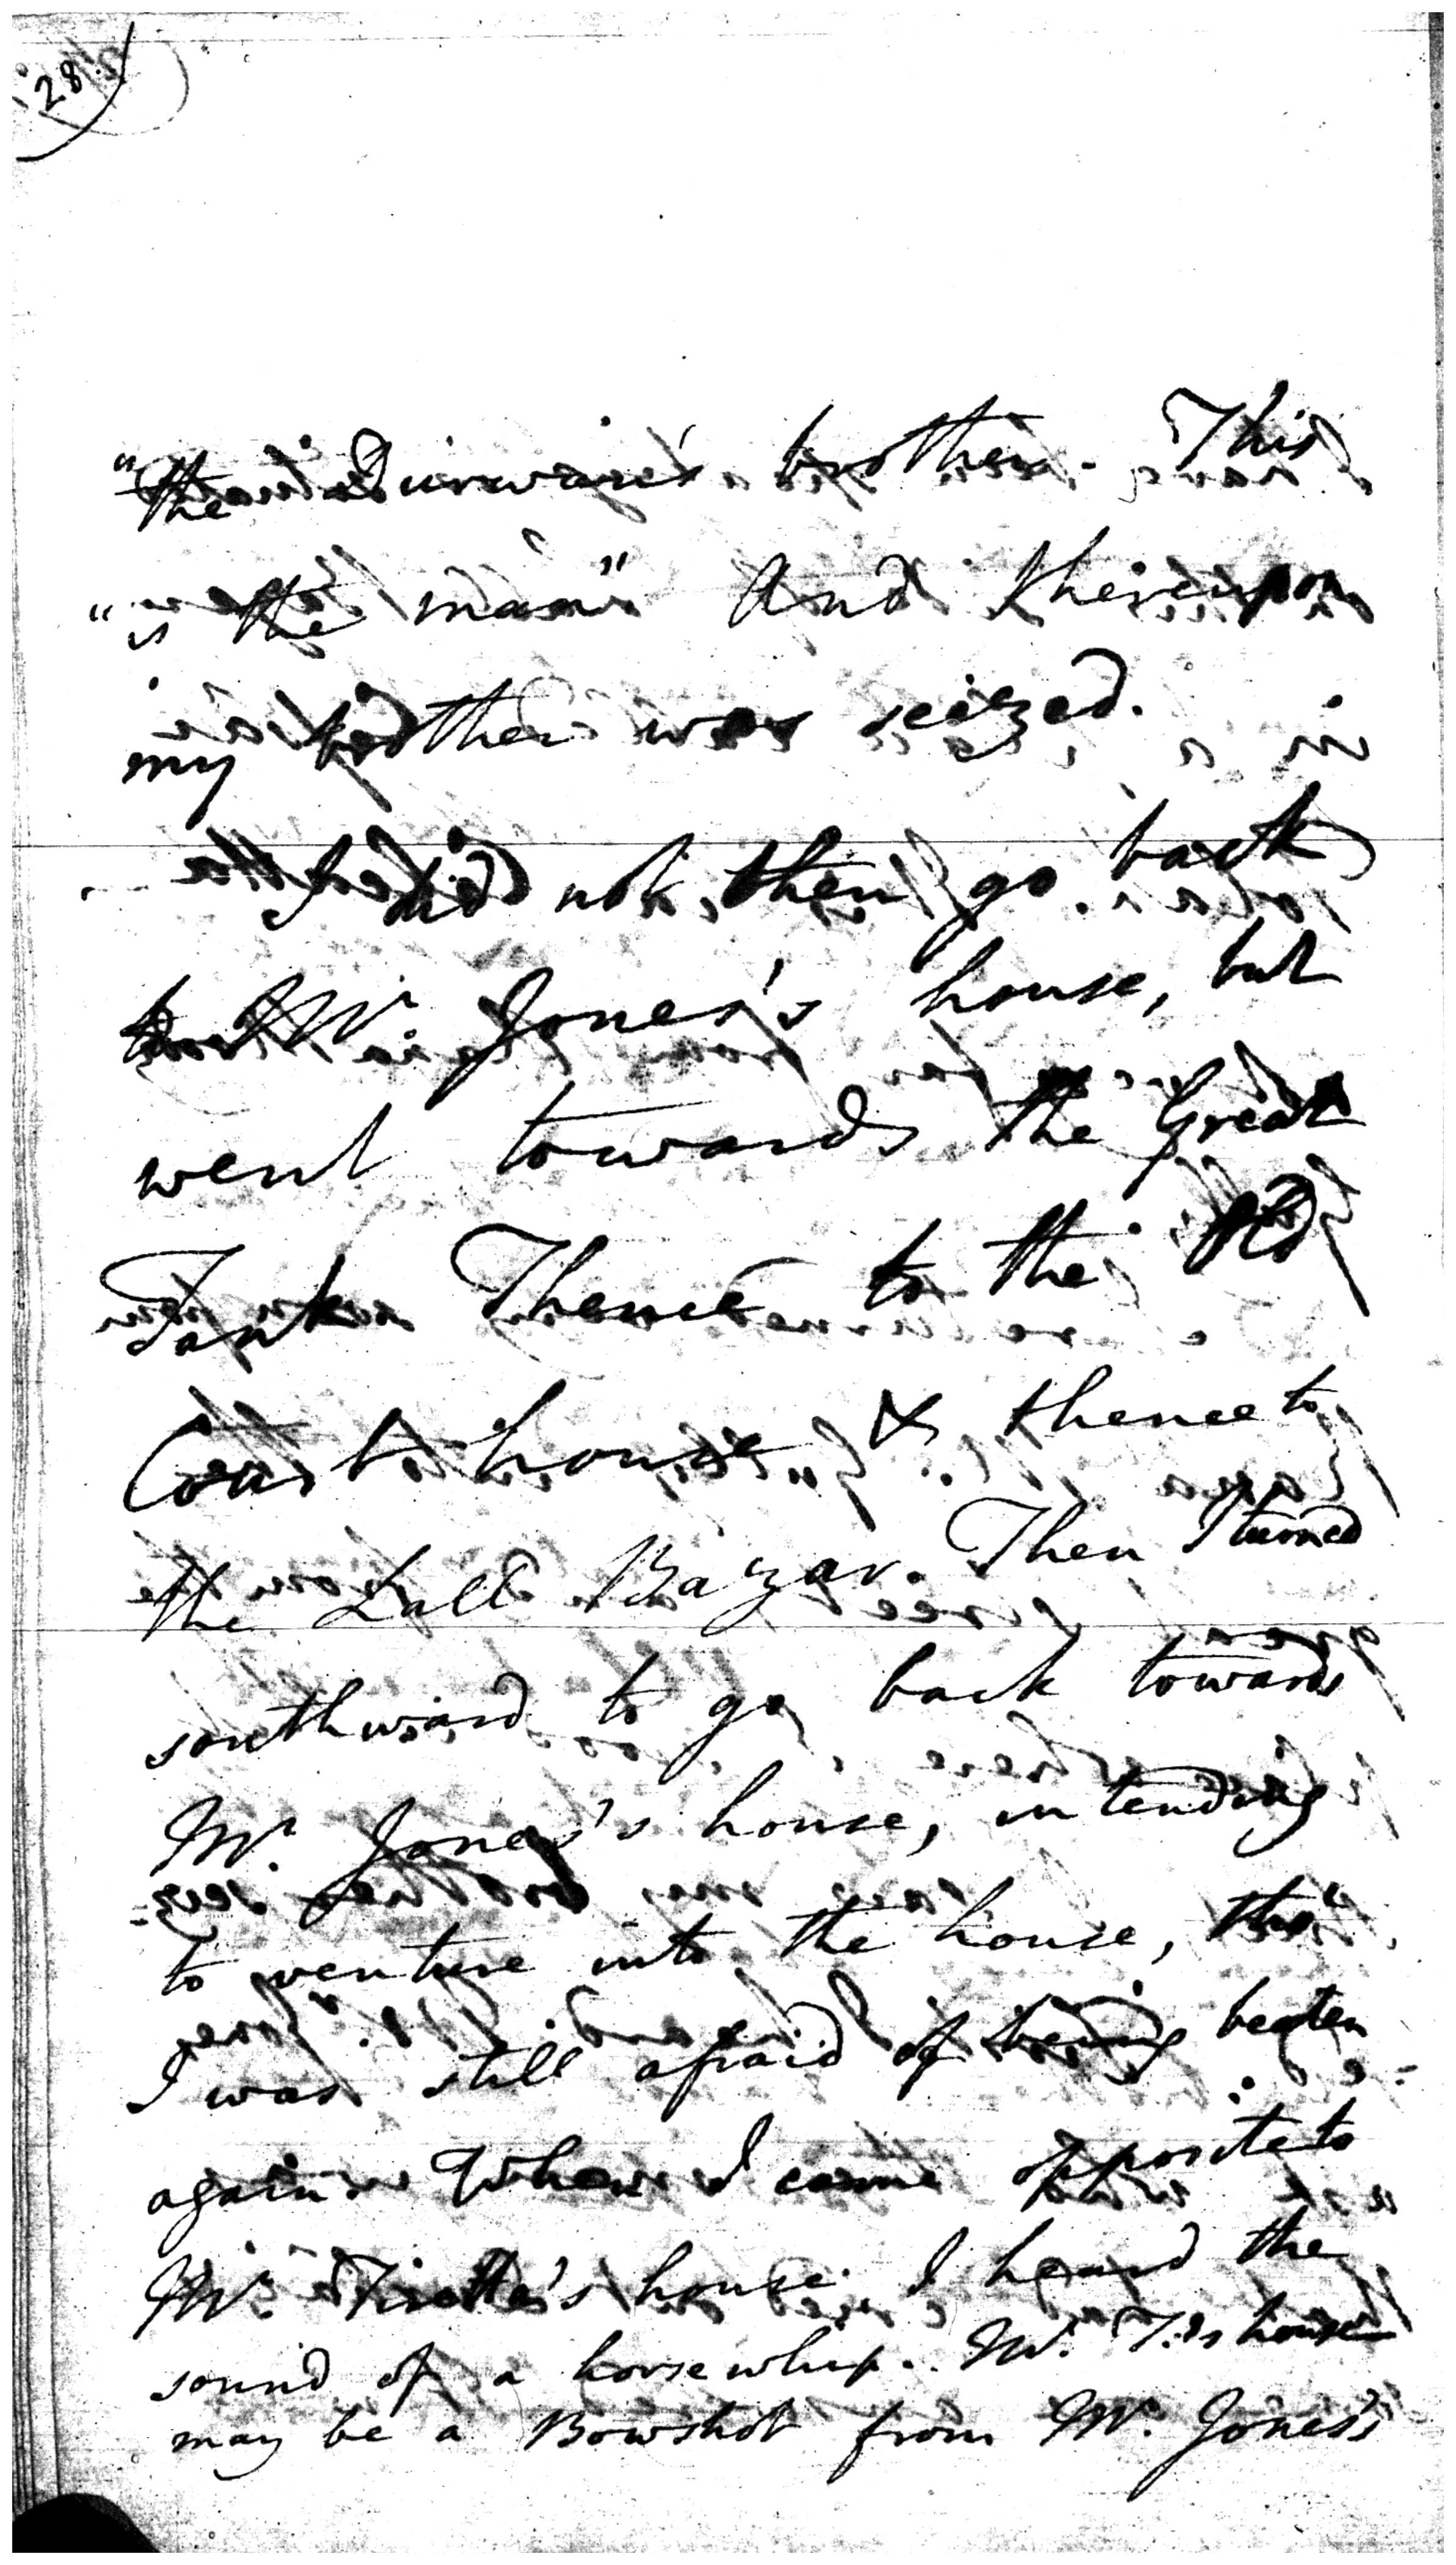 28
"the Durwan's brother. This
"is the man" And thereupon
my brother was seized.
I did not then go back
to Mr Jones's house, but
went towards the Great
Tank Thence to the Old
Court house & thence to
the Lall Bazar. Then I turned
southward to go back towards
Mr. Jones's house, intending
to venture into the house, tho'
I was still afraid of being beaten
again When I came opposite to
Mr. Tiretta's house I heard the
sound of a horsewhip. Mr. T.'s house
may be a Bowshot from Mr. Jones's